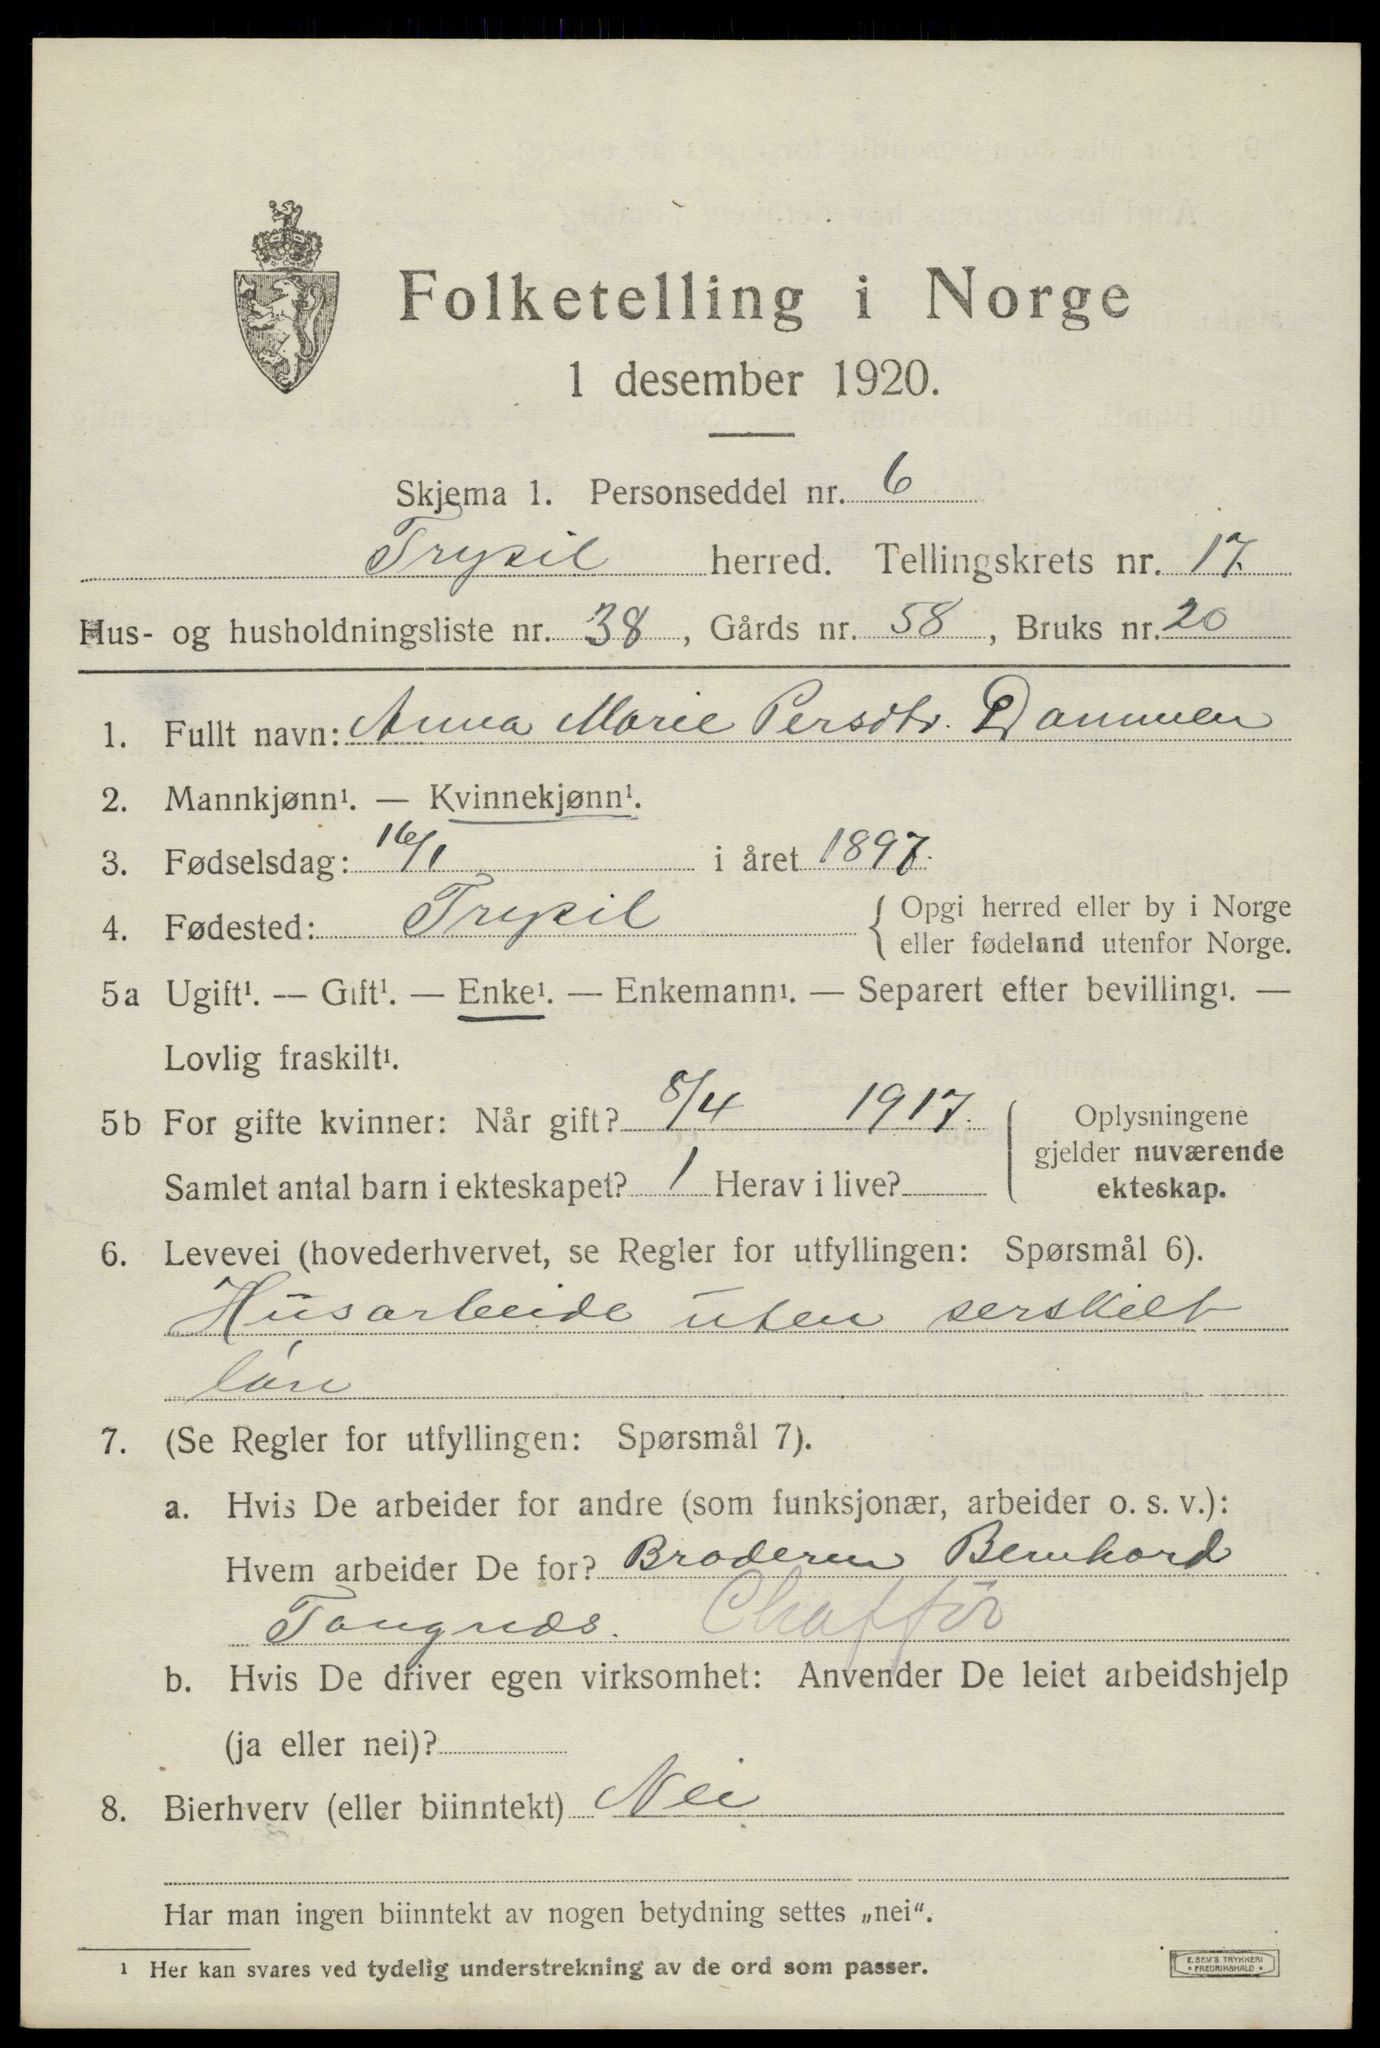 Folketelling i Norge
1 desember 1920.
Skjema 1. Personseddel nr. 6
Trysil herred. Tellingskrets nr. 17.
Hus- og husholdningsliste nr. 38, Gårds nr. 58, Bruks nr. 20
1. Fullt navn: Anna Marie Persdtr. Dammen
2. Mannkjønn¹. — Kvinnekjønn¹.
3. Fødselsdag: 16/1 i året 1897.
4. Fødested: Trysil { Opgi herred eller by i Norge
eller fødeland utenfor Norge.
5a Ugift¹. — Gift¹. — Enke¹. — Enkemann¹. — Separert efter bevilling¹. —
Lovlig fraskilt¹.
5b For gifte kvinner: Når gift? 8/4 1917.
Samlet antal barn i ekteskapet? 1 Herav i live?
Oplysningene
gjelder nuværende
ekteskap.
6. Levevei (hovederhvervet, se Regler for utfyllingen: Spørsmål 6).
Husarbeide uten serskilt
løn
7. (Se Regler for utfyllingen: Spørsmål 7).
a. Hvis De arbeider for andre (som funksjonær, arbeider o. s. v.):
Hvem arbeider De for? Broderen Bernhard
Tangnes. Chaffør
b. Hvis De driver egen virksomhet: Anvender De leiet arbeidshjelp
(ja eller nei)?
8. Bierhverv (eller biinntekt) Nei
Har man ingen biinntekt av nogen betydning settes „nei“.
¹ Her kan svares ved tydelig understrekning av de ord som passer.
E. SEM'S TRYKKERI
* FREDRIKSHALD *